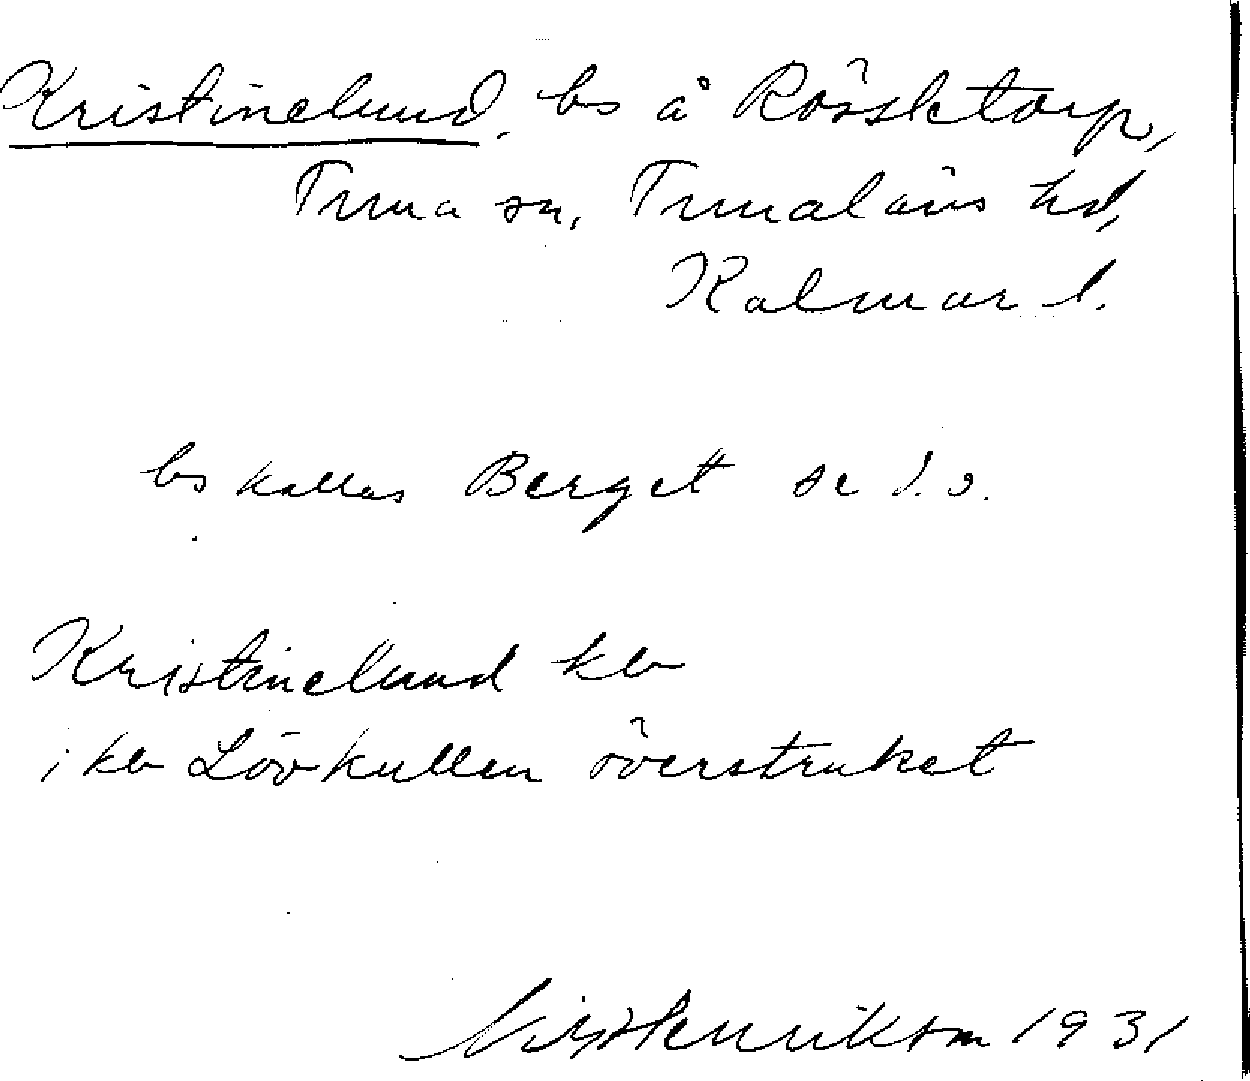 Kristinelund, bs å Rössletorp,
Tuna sn, Tunaläns hd,
Kalmar l.
bs kallas Berget se d.o.
Kristinelund kb
i kb Lövkullen överstruket
Henrikson 1931